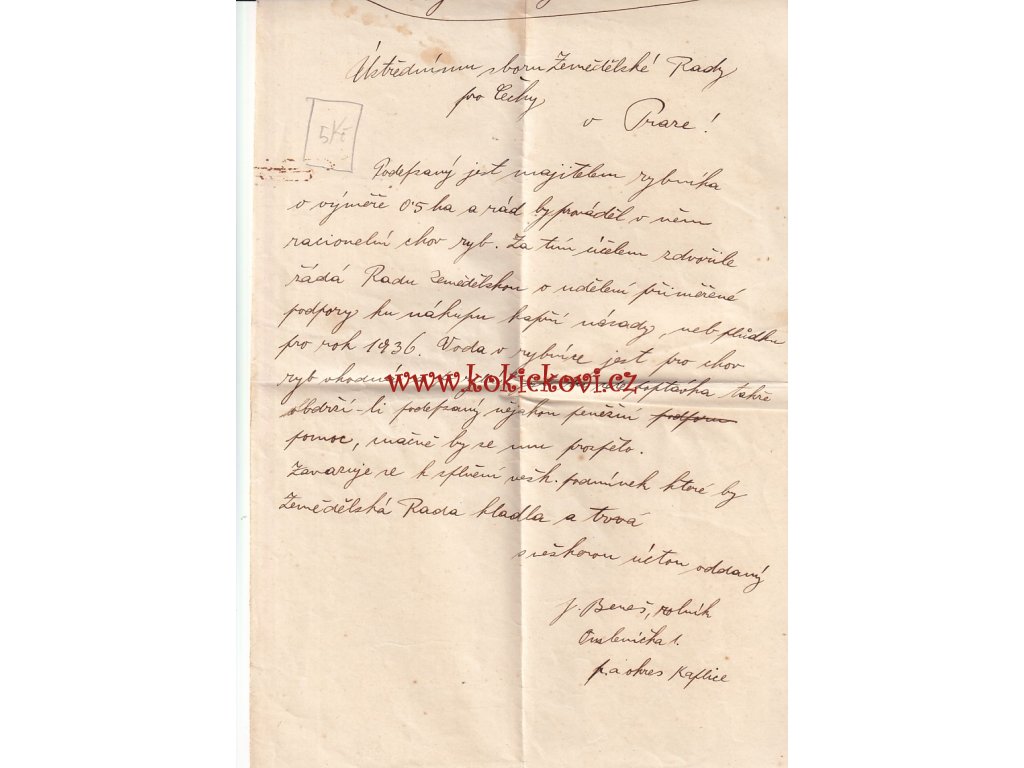 Ústřednímu sboru Zemědělské Rady
pro Čechy
v Praze!
5 Kč
Podepsaný jest majitelem rybníka
o výměře 0.5 ha a rád by prováděl v něm
racionelní chov ryb. Za tím účelem zdvořile
žádá Radu Zemědělskou o udělení přiměřené
podpory ku nákupu kapří násady, neb plůdku
pro rok 1936. Voda v rybníce jest pro chov
ryb vhodná poptávka takže
www.kokickovi.cz
obdrží-li podepsaný nějakou peněžní
pomoc, značně by se mu prospělo.
Zavazuje se k splnění vešk. podmínek které by
Zemědělská Rada kladla a trvá
s veškerou úctou oddaný
J. Beneš, rolník
Omlenička 1.
p. a okres Kaplice